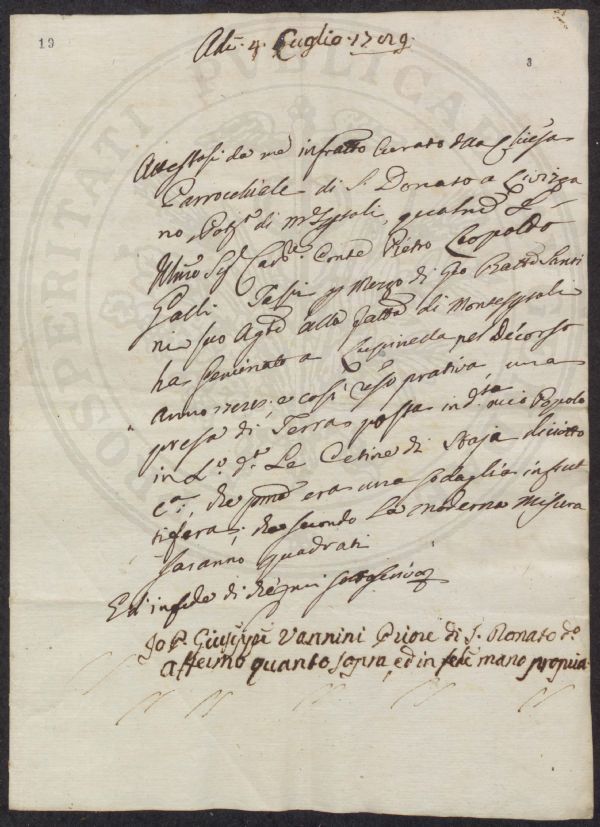 19
3
Adì 4. Luglio 1729.
Attestasi da me infratto Curato della Chiesa
Parrocchiale di S. Donato a Civizza
no Pot.a di M. Ipoli, qualm.e
Illmo Sig. Cav.re Conte Pietro Leopoldo
Galli Tassi p mezzo di Gio Batta Santi
ni suo Ag.te alla Fatt.a di Monteispoli
ha seminato a Lupinella nel Decorso
anno e così reso prativa, una
presa di Terra posta in d.to mio Popolo
in L.o d.o Le Cetine di Staja diciotto
c.a, che prima era una sodaglia infrut
tifera, che secondo La moderna Misura
saranno quadrati
Ed in fede di
Io P. Giuseppe Vannini Priore di S. Donato d.o
affermo quanto sopra, ed in fede mano propria
PROSPERITATI PUBLICAE